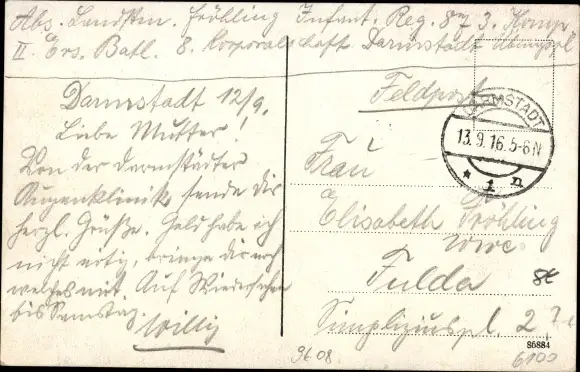 Abs. Landstm. Fröhling Infant. Reg. 87 3. Komp
II. Ers. Batl. 8. Korporalschaft Darmstadt Übungspl
Feldpost
DARMSTADT
13.9.16.5-6N
* 1 n
Darmstadt 12/9.
Liebe Mutter!
Von der Darmstädter
Augenklinik sende dir
herzl. Grüße. Geld habe ich
nicht nötig, bringe dir noch
welches mit Auf Wiedersehen
bis Samstag.
Willy
Frau
Elisabeth Fröhling
Wwe
Fulda
Simpliziuspl. 2
86884
9608
6100